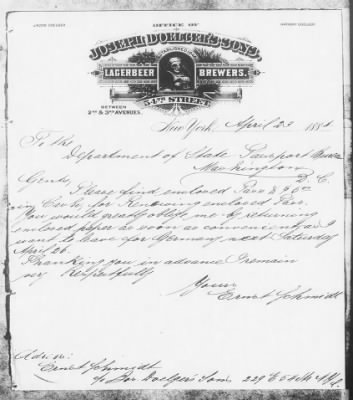 JACOB DOELGER
ANTHONY DOELGER
OFFICE OF
JOSEPH DOELGER'S SONS,
LAGERBEER BREWERS,
54TH STREET
BETWEEN
2ND & 3RD AVENUES.
New York, April 23 188
To the
Department of State Passport
Washington
D. C.
Gents,
Please find enclosed
in for Renewing enclosed
You would greatly oblige me by returning
enclosed paper as soon as convenient as I
want to leave for Germany next Saturday
April 26.
Thanking you in advance I remain
very Respectfully
Yours
Ernst Schmidt
Ernst Schmidt
c/o Jos. Doelger's Sons 229 E 54 St N.Y.